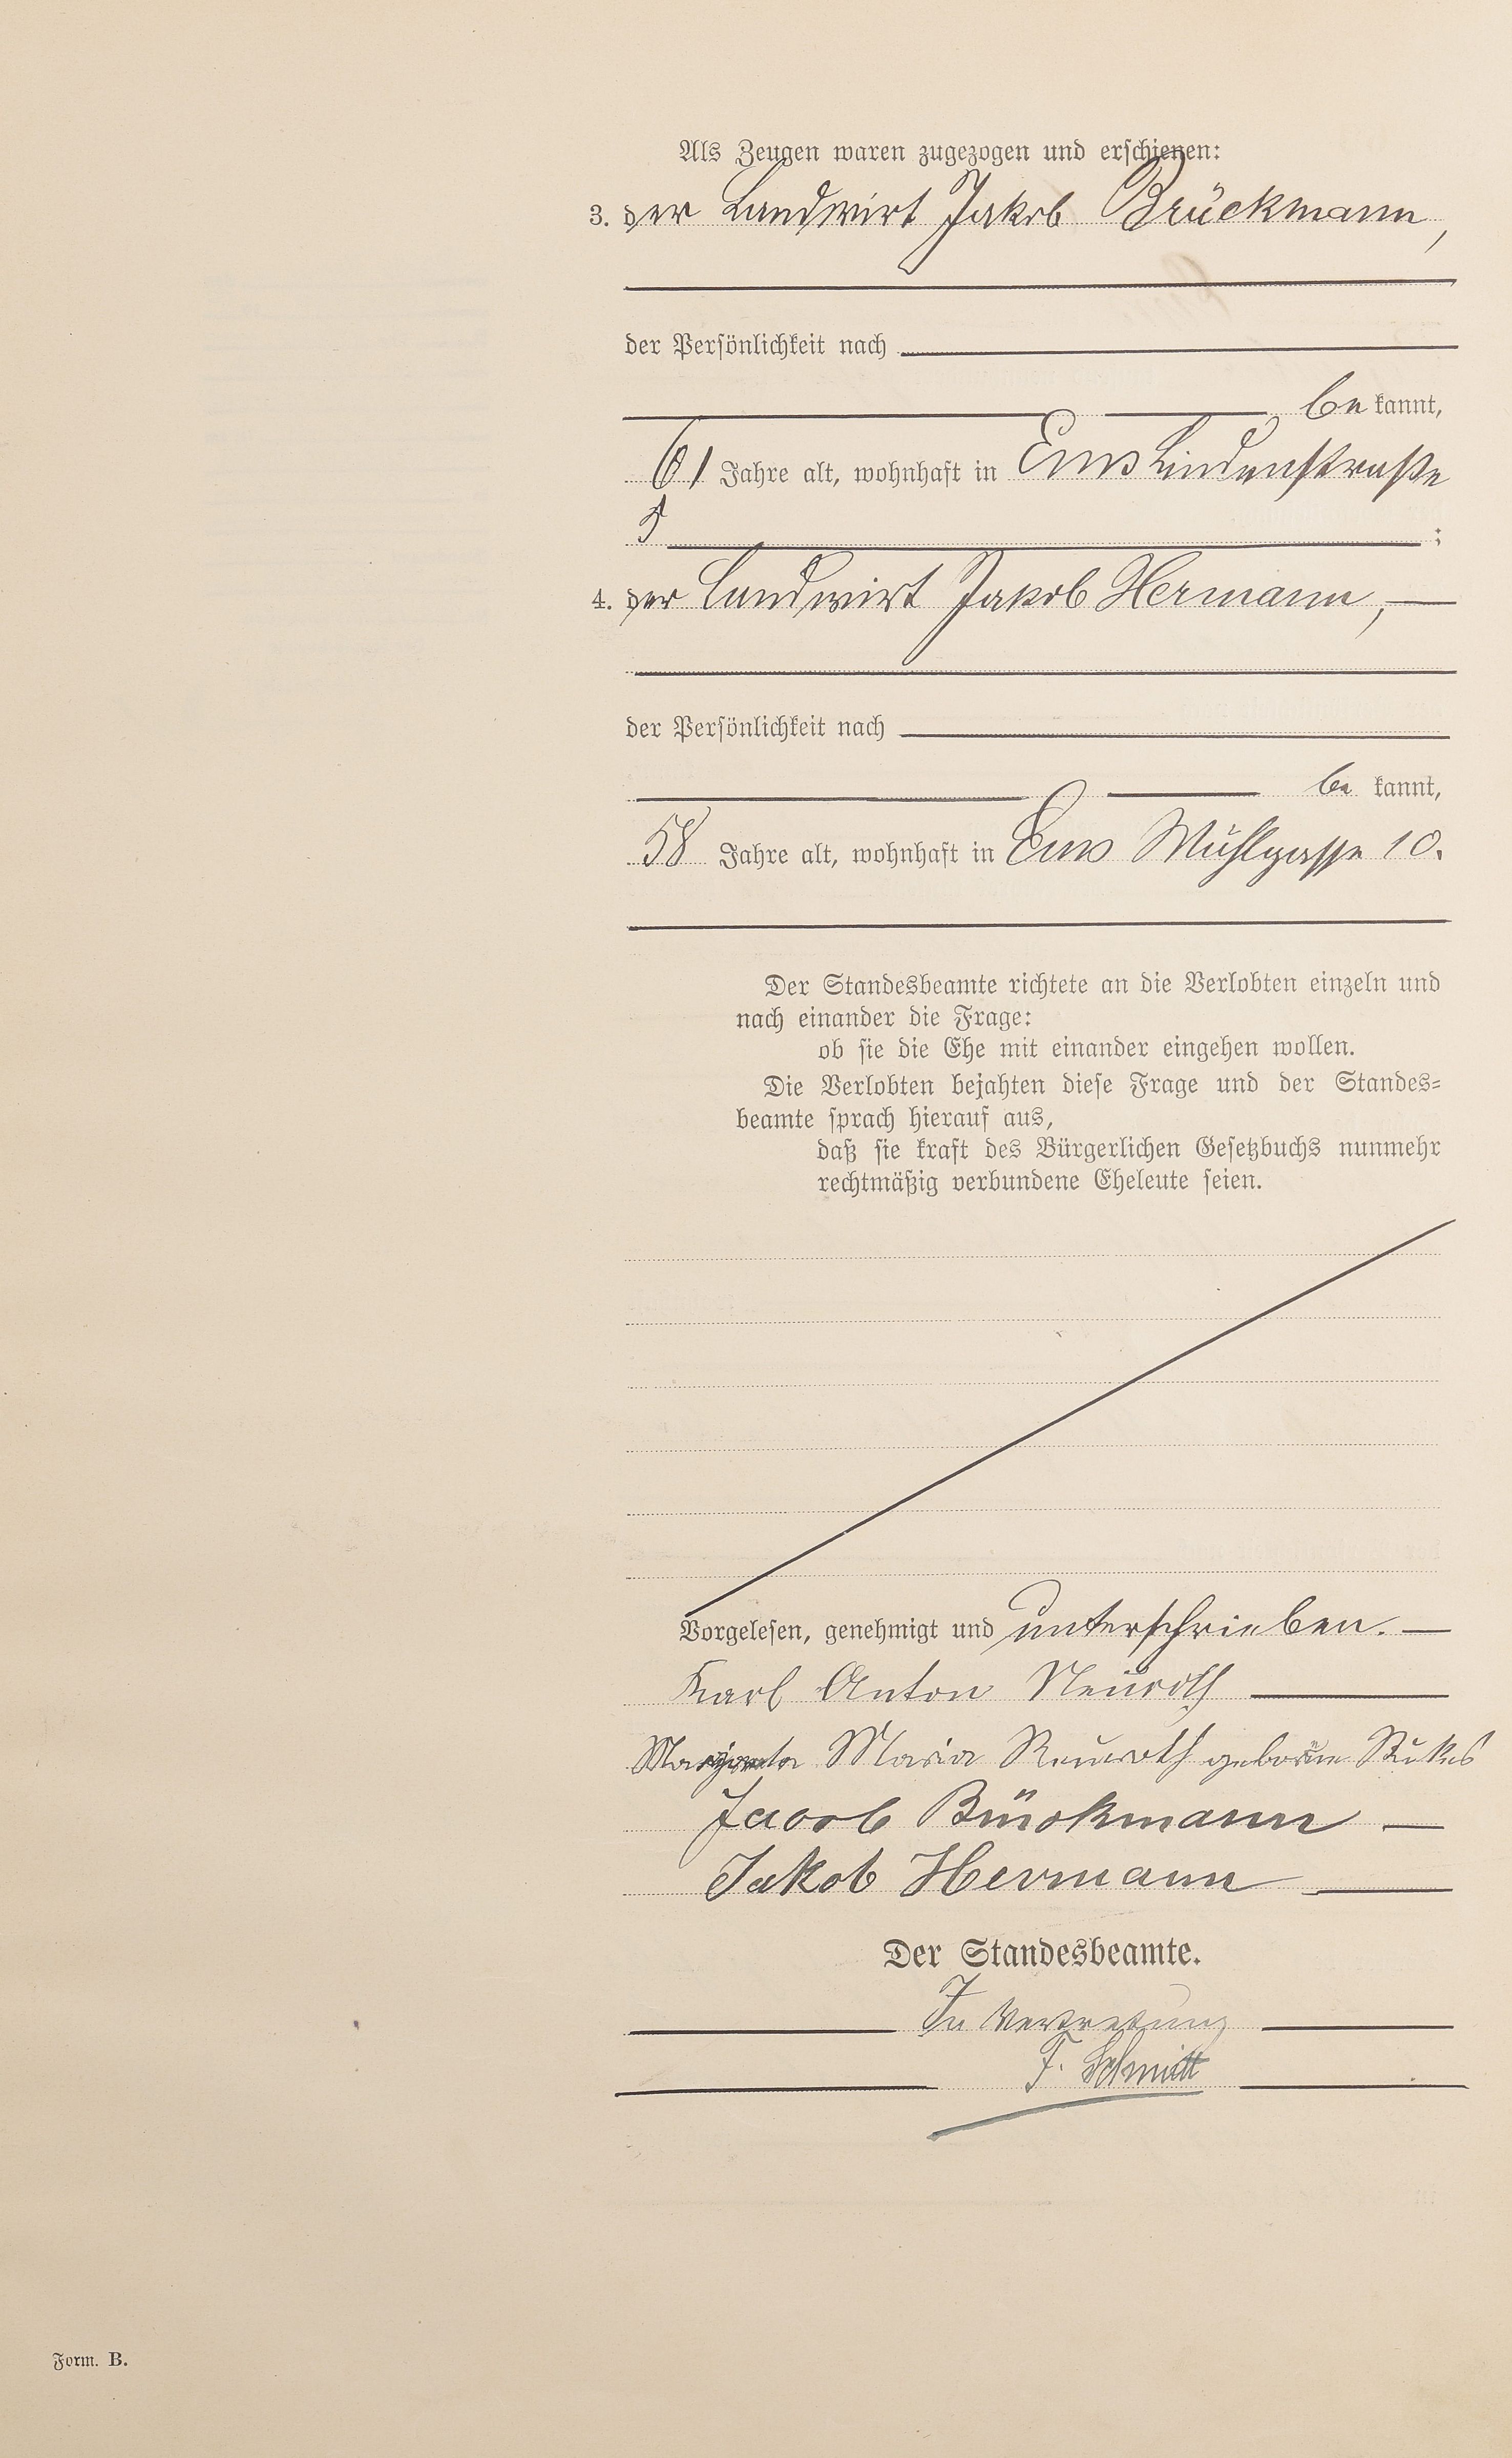 Als Zeugen waren zugezogen und erschienen:
3. der Landwirt Jakob Brückmann,
der Persönlichkeit nach
be kannt,
61 Jahre alt, wohnhaft in Ems Lindenstraße
5 ;
4. der Landwirt Jakob Hermann,
der Persönlichkeit nach
be kannt,
58 Jahre alt, wohnhaft in Ems Mühlgasse 10.
Der Standesbeamte richtete an die Verlobten einzeln und
nach einander die Frage:
ob sie die Ehe mit einander eingehen wollen.
Die Verlobten bejahten diese Frage und der Standes=
beamte sprach hierauf aus,
daß sie kraft des Bürgerlichen Gesetzbuchs nunmehr
rechtmäßig verbundene Eheleute seien.
Vorgelesen, genehmigt und unterschrieben.
Karl Anton Neuroth
Maria Neuroth geborne
Jacob Brückmann
Jakob Hermann
Der Standesbeamte.
In Vertretung
F. Schmitt
Form. B.